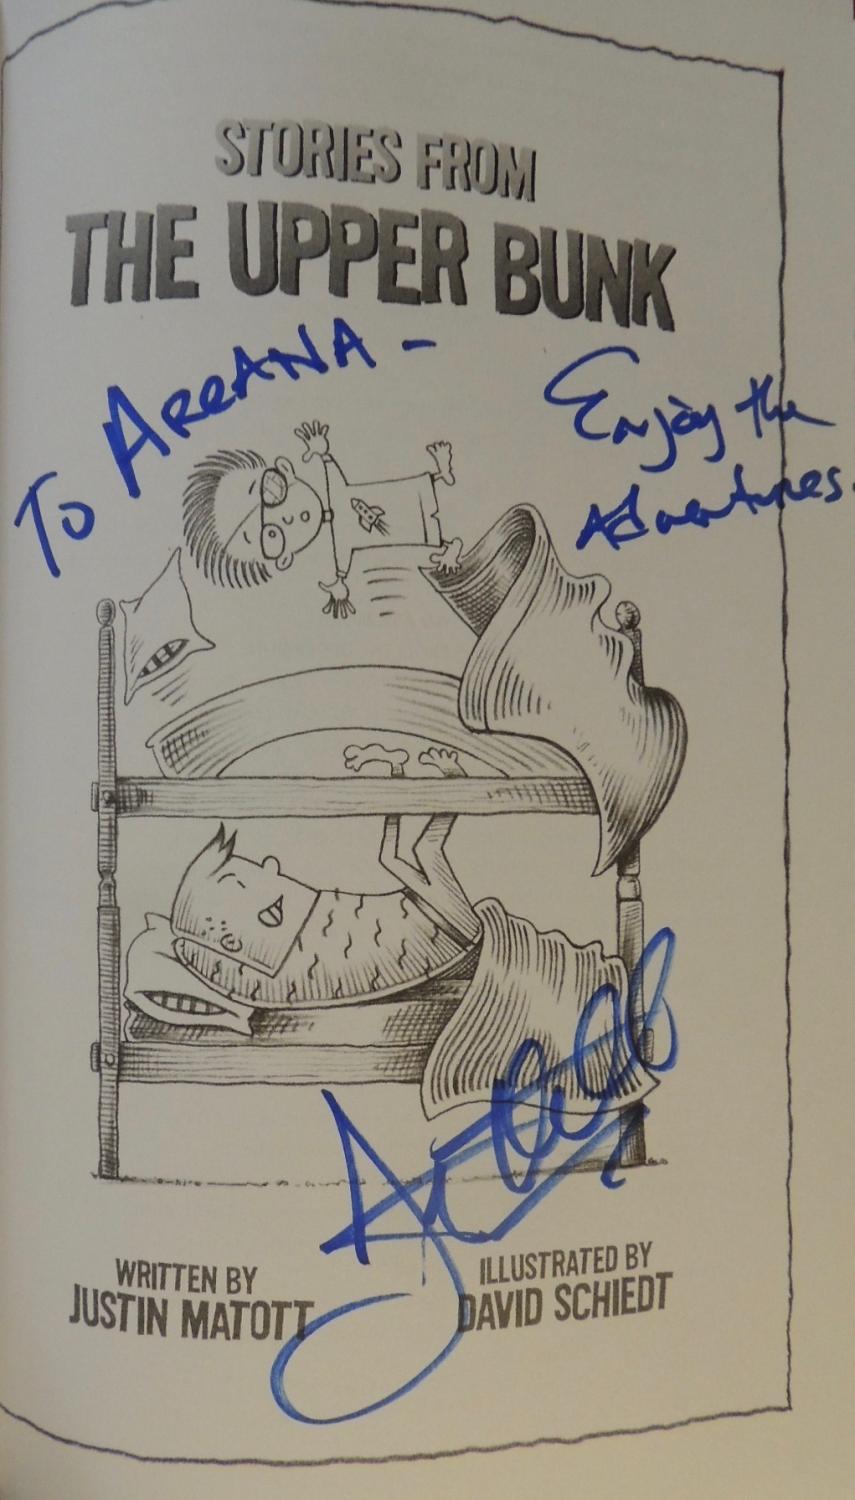 STORIES FROM
THE UPPER BUNK
To ARRANA -
Enjoy the
Adventures.
WRITTEN BY
JUSTIN MATOTT
ILLUSTRATED BY
DAVID SCHIEDT